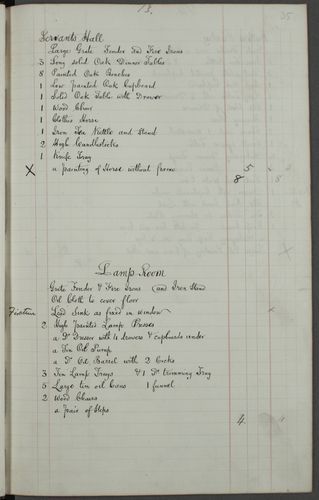 73.
35
Servants Hall
Large Grate Fender and Fire Irons
3 Long solid Oak Dinner Tables
8 Painted Oak Benches
1 Low painted Oak Cupboard
1 Solid Oak Table with Drawer
1 Wood Chair
1 Clothes Horse
1 Iron Tea Kettle and Stand
2 High Candlesticks
1 Knife Tray
X a painting of Horse without frame 5
8
Lamp Room
Grate Fender & Fire Irons (and Iron Stand
Oil Cloth to cover floor
Fixture Lead Sink as fixed in window
2 High painted Lamp Presses
a Do Dresser with 4 drawers & cupboards under
a Tin Oil Pump
a Do Oil Barrel with 2 Cocks
3 Tin Lamp Trays & 1 Do trimming Tray
5 Large tin oil Cans 1 funnel
2 Wood Chairs
a pair of Steps
4.